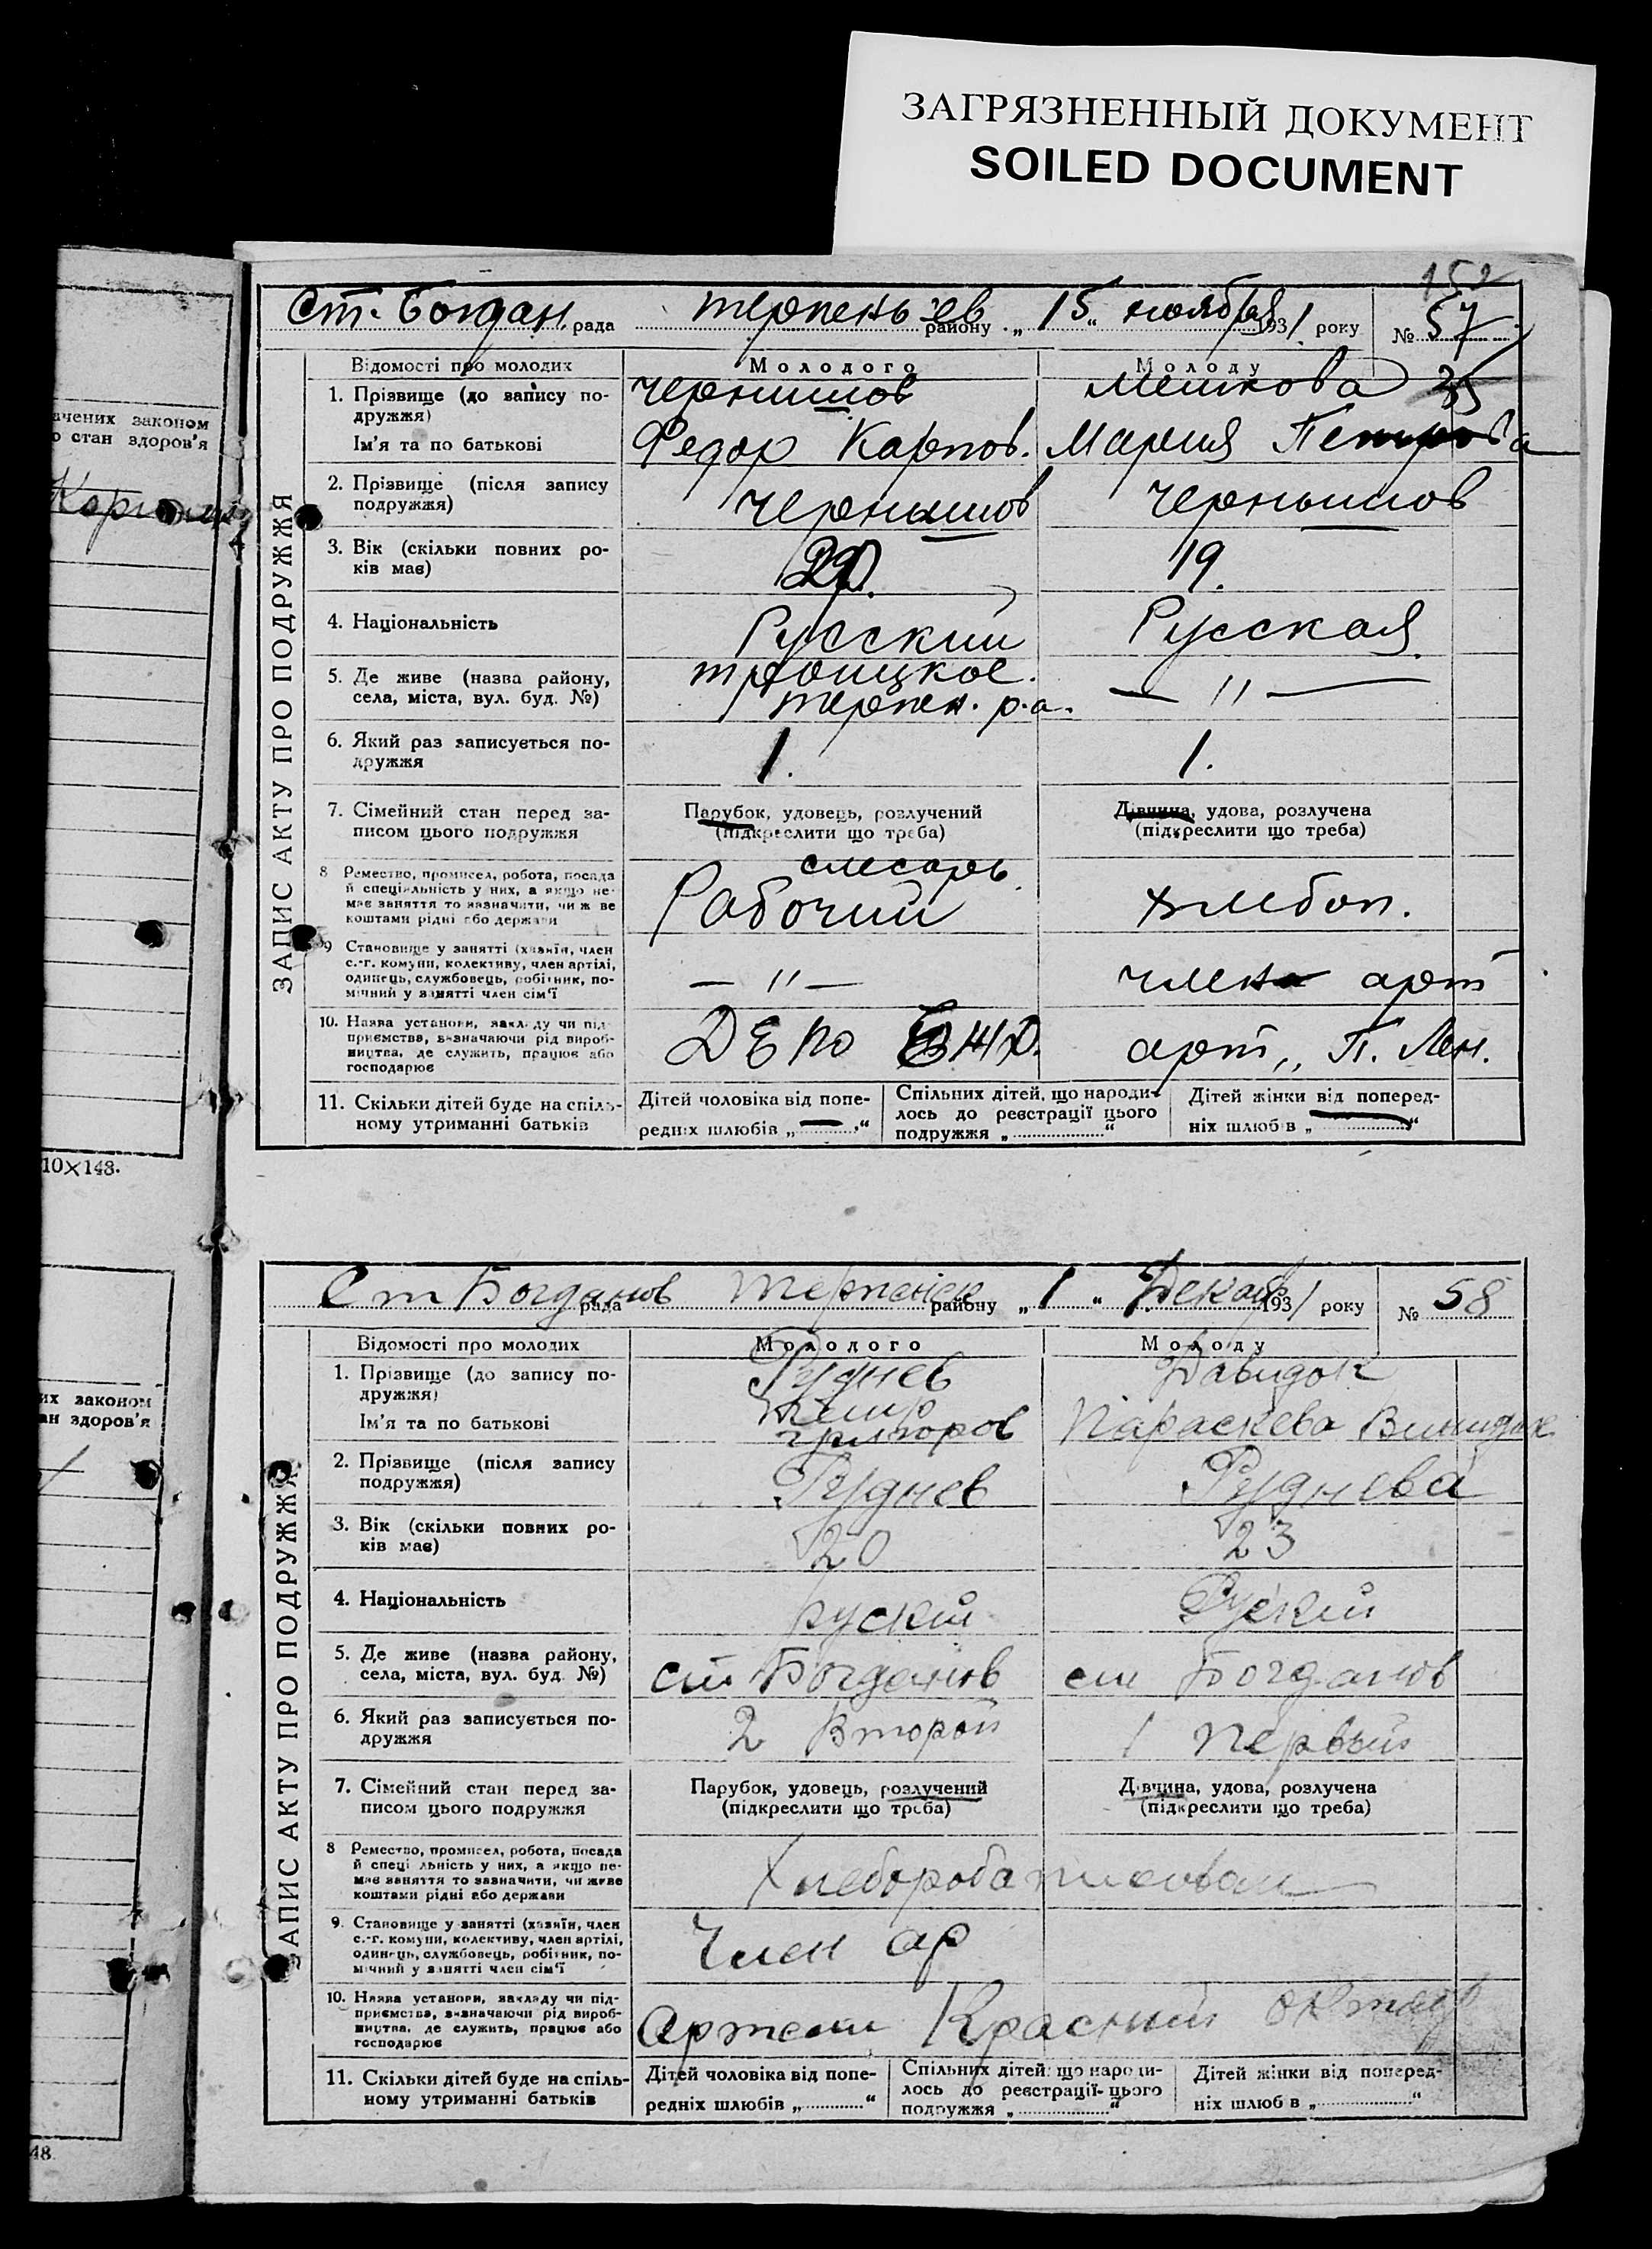 ЗАГРЯЗНЕННЫЙ ДОКУМЕНТ
SOILED DOCUMENT
ачених законом
о стан здоров'я
10×148.
их законом
ан здоров'я
48.
ЗАПИС АКТУ ПРО ПОДРУЖЖЯ
Ст. Богдан. рада терпеньев району „ 15 “ ноября 1931 року № 57
35
Відомості про молодих Молодого Молоду
1. Прізвище (до запису по- чернышов мешкова
дружжя)
Ім'я та по батькові Федор Карпов. Мария Петрова
2. Прізвище (після запису чернышов чернышов
подружжя)
3. Вік (скільки повних ро- 19.
ків має)
4. Національність Русский Русская
5. Де живе (назва району, троицкое. — " —
села, міста, вул. буд. №) терпен. р-а.
6. Який раз записується по- 1. 1.
дружжя
7. Сімейний стан перед за- Парубок, удовець, розлучений Дівчина, удова, розлучена
писом цього подружжя (підкреслити що треба) (підкреслити що треба)
8 Ремество, промисел, робота, посада слесарь
й спеціяльність у них, а якщо не- Рабочий хлебоп.
має заняття то зазначити, чи живе
коштами рідні або держави
9 Становище у занятті (хазяїн, член
с.-г. комуни, колективу, член артілі, — " — члена арт
одинець, службовець, робітник, по-
мічний у занятті член сім'ї
10. Назва установи, закладу чи під-
приємства, зазначаючи рід вироб- ДЕПО арт,, П. Лен.
ництва, де служить, працює або
господарює
11. Скільки дітей буде на спіль- Дітей чоловіка від попе- Спільних дітей, що народи- Дітей жінки від поперед-
ному утриманні батьків редніх шлюбів „ — “ лось до реєстрації цього ніх шлюбів „ “
подружжя „ “
ЗАПИС АКТУ ПРО ПОДРУЖЖЯ
Ст Богданов рада району „ 1 “ Декаб 1931 року № 58
Відомості про молодих Молодого Молоду
1. Прізвище (до запису по- Руднев Давидок
дружжя)
Ім'я та по батькові григоров Параскева
2. Прізвище (після запису Руднев Руднева
подружжя)
3. Вік (скільки повних ро- 20 23
ків має)
4. Національність руский Руский
5. Де живе (назва району, ст Богданов ст Богданов
села, міста, вул. буд. №)
6. Який раз записується по- 2 Второй 1 первый
дружжя
7. Сімейний стан перед за- Парубок, удовець, розлучений Дівчина, удова, розлучена
писом цього подружжя (підкреслити що треба) (підкреслити що треба)
8 Ремество, промисел, робота, посада
й спеціяльність у них, а якщо не-
має заняття то зазначити, чи живе
коштами рідні або держави
9. Становище у занятті (хазяїн, член
с.-г. комуни, колективу, член артілі, Член ар
одинець, службовець, робітник, по-
мічний у занятті член сім'ї
10. Назва установи, закладу чи під-
приємства, зазначаючи рід вироб- Артели Красний
ництва, де служить, працює або
господарює
11. Скільки дітей буде на спіль- Дітей чоловіка від попе- Спільних дітей, що народи- Дітей жінки від поперед-
ному утриманні батьків редніх шлюбів „ “ лось до реєстрації цього ніх шлюб в „ “
подружжя „ “